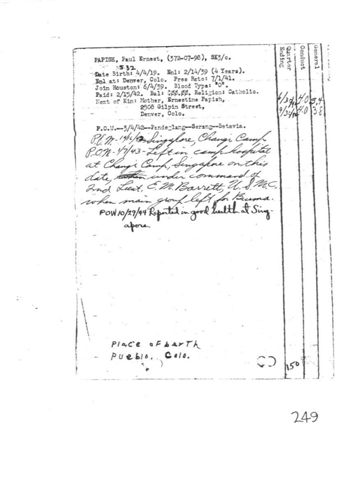 PAPISH, Paul Ernest, (372-07-98), SK3/c.
Date Birth: 4/4/19. Enl: 2/14/39 (4 Years).
Enl at: Denver, Colo. Pres Rate: 7/1/41.
Join Houston: 6/4/39. Blood Type: "O".
Paid: 2/15/42. Bal: $55.55. Religion: Catholic.
Next of Kin: Mother, Ernestine Papish,
2508 Gilpin Street,
Denver, Colo.
P.O.W.--3/4/42--Pandeglang--Serang--Batavia.
Singapore, Changi Camp
P.O.W. Left in camp hospital
at Changi Camp, Singapore on this
date, under command of
2nd Lieut. E. M. Barrett, U.S.M.C.
when main group left for Burma.
POW 10/27/44 Reported in good health at Sing-
apore.
Place of barth
Pueblo, Colo.
Quarter Ending
Conduct
General
150
249